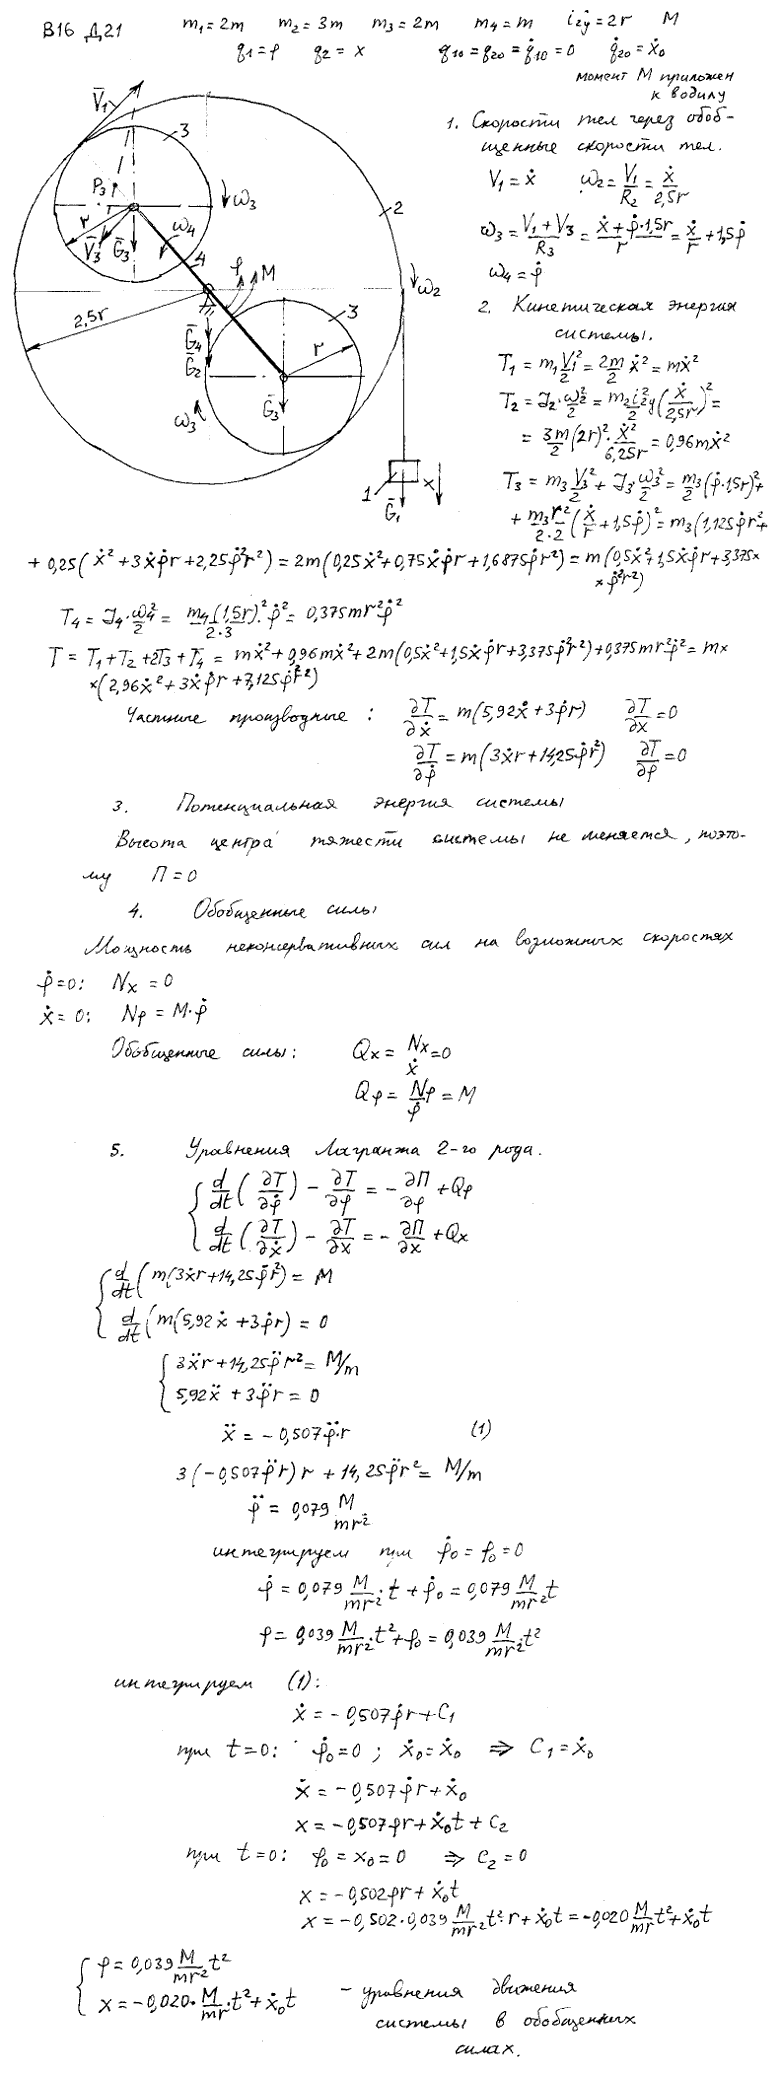 В16 Д21 m₁=2m m₂=3m m₃=2m m₄=m i₂y=2r M
q₁=φ q₂=x q₁₀=q₂₀=q̇₁₀=0 q̇₂₀=ẋ₀
момент M приложен
к водилу
V̄₁ 3 P₃ r V̄₃ Ḡ₃ ω₃ ω₄ 4 φ M 2 ω₂
2,5r Ḡ₄ Ḡ₂ 3 r ω₃ Ḡ₃ 1 x Ḡ₁
1. Скорости тел через обоб-
щенные скорости тел.
V₁=ẋ ω₂=V₁/R₂=ẋ/2,5r
ω₃=(V₁+V₃)/R₃=(ẋ+φ̇·1,5r)/r=ẋ/r+1,5φ̇
ω₄=φ̇
2. Кинетическая энергия
системы.
T₁=m₁V₁²/2=2m/2 ẋ²=mẋ²
T₂=J₂·ω₂²/2=m₂i₂²y/2(ẋ/2,5r)²=
=3m/2(2r)²·ẋ²/6,25r=0,96mẋ²
T₃=m₃V₃²/2+J₃·ω₃²/2=m₃/2(φ̇·1,5r)²+
+m₃r²/2·2(ẋ/r+1,5φ̇)²=m₃(1,125φ̇r²+
+0,25(ẋ²+3ẋφ̇r+2,25φ̇²r²)=2m(0,25ẋ²+0,75ẋφ̇r+1,6875φ̇r²)=m(0,5ẋ²+1,5ẋφ̇r+3,375×
×φ̇²r²)
T₄=J₄·ω₄²/2=m₄(1,5r)²/2·3·φ̇²=0,375mr²φ̇²
T=T₁+T₂+2T₃+T₄=mẋ²+0,96mẋ²+2m(0,5ẋ²+1,5ẋφ̇r+3,375φ̇²r²)+0,375mr²φ̇²=m×
×(2,96ẋ²+3ẋφ̇r+7,125φ̇²r²)
Частные производные: ∂T/∂ẋ=m(5,92ẋ+3φ̇r) ∂T/∂x=0
∂T/∂φ̇=m(3ẋr+14,25φ̇r²) ∂T/∂φ=0
3. Потенциальная энергия системы
Высота центра тяжести системы не меняется, поэто-
му П=0
4. Обобщенные силы
Мощность неконсервативных сил на возможных скоростях
φ̇=0: Nx=0
ẋ=0: Nφ=M·φ̇
Обобщенные силы: Qx=Nx/ẋ=0
Qφ=Nφ/φ̇=M
5. Уравнения Лагранжа 2-го рода.
d/dt(∂T/∂φ̇)-∂T/∂φ=-∂П/∂φ+Qφ
d/dt(∂T/∂ẋ)-∂T/∂x=-∂П/∂x+Qx
d/dt(m(3ẋr+14,25φ̇r²)=M
d/dt(m(5,92ẋ+3φ̇r)=0
3ẍr+14,25φ̈r²=M/m
5,92ẍ+3φ̈r=0
ẍ=-0,507φ̈·r (1)
3(-0,507φ̈r)r+14,25φ̈r²=M/m
φ̈=0,079 M/mr²
интегрируем при φ̇₀=φ₀=0
φ̇=0,079 M/mr²·t+φ̇₀=0,079 M/mr² t
φ=0,039 M/mr²·t²+φ₀=0,039 M/mr²·t²
интегрируем (1):
ẋ=-0,507φ̇r+C₁
при t=0: φ̇₀=0; ẋ₀=ẋ₀ ⇒ C₁=ẋ₀
ẋ=-0,507φ̇r+ẋ₀
x=-0,507φr+ẋ₀t+C₂
при t=0: φ₀=x₀=0 ⇒ C₂=0
x=-0,502φr+ẋ₀t
x=-0,502·0,039 M/mr² t²·r+ẋ₀t=-0,020 M/mr t²+ẋ₀t
φ=0,039 M/mr² t²
x=-0,020·M/mr·t²+ẋ₀t
- уравнения движения
системы в обобщенных
силах.